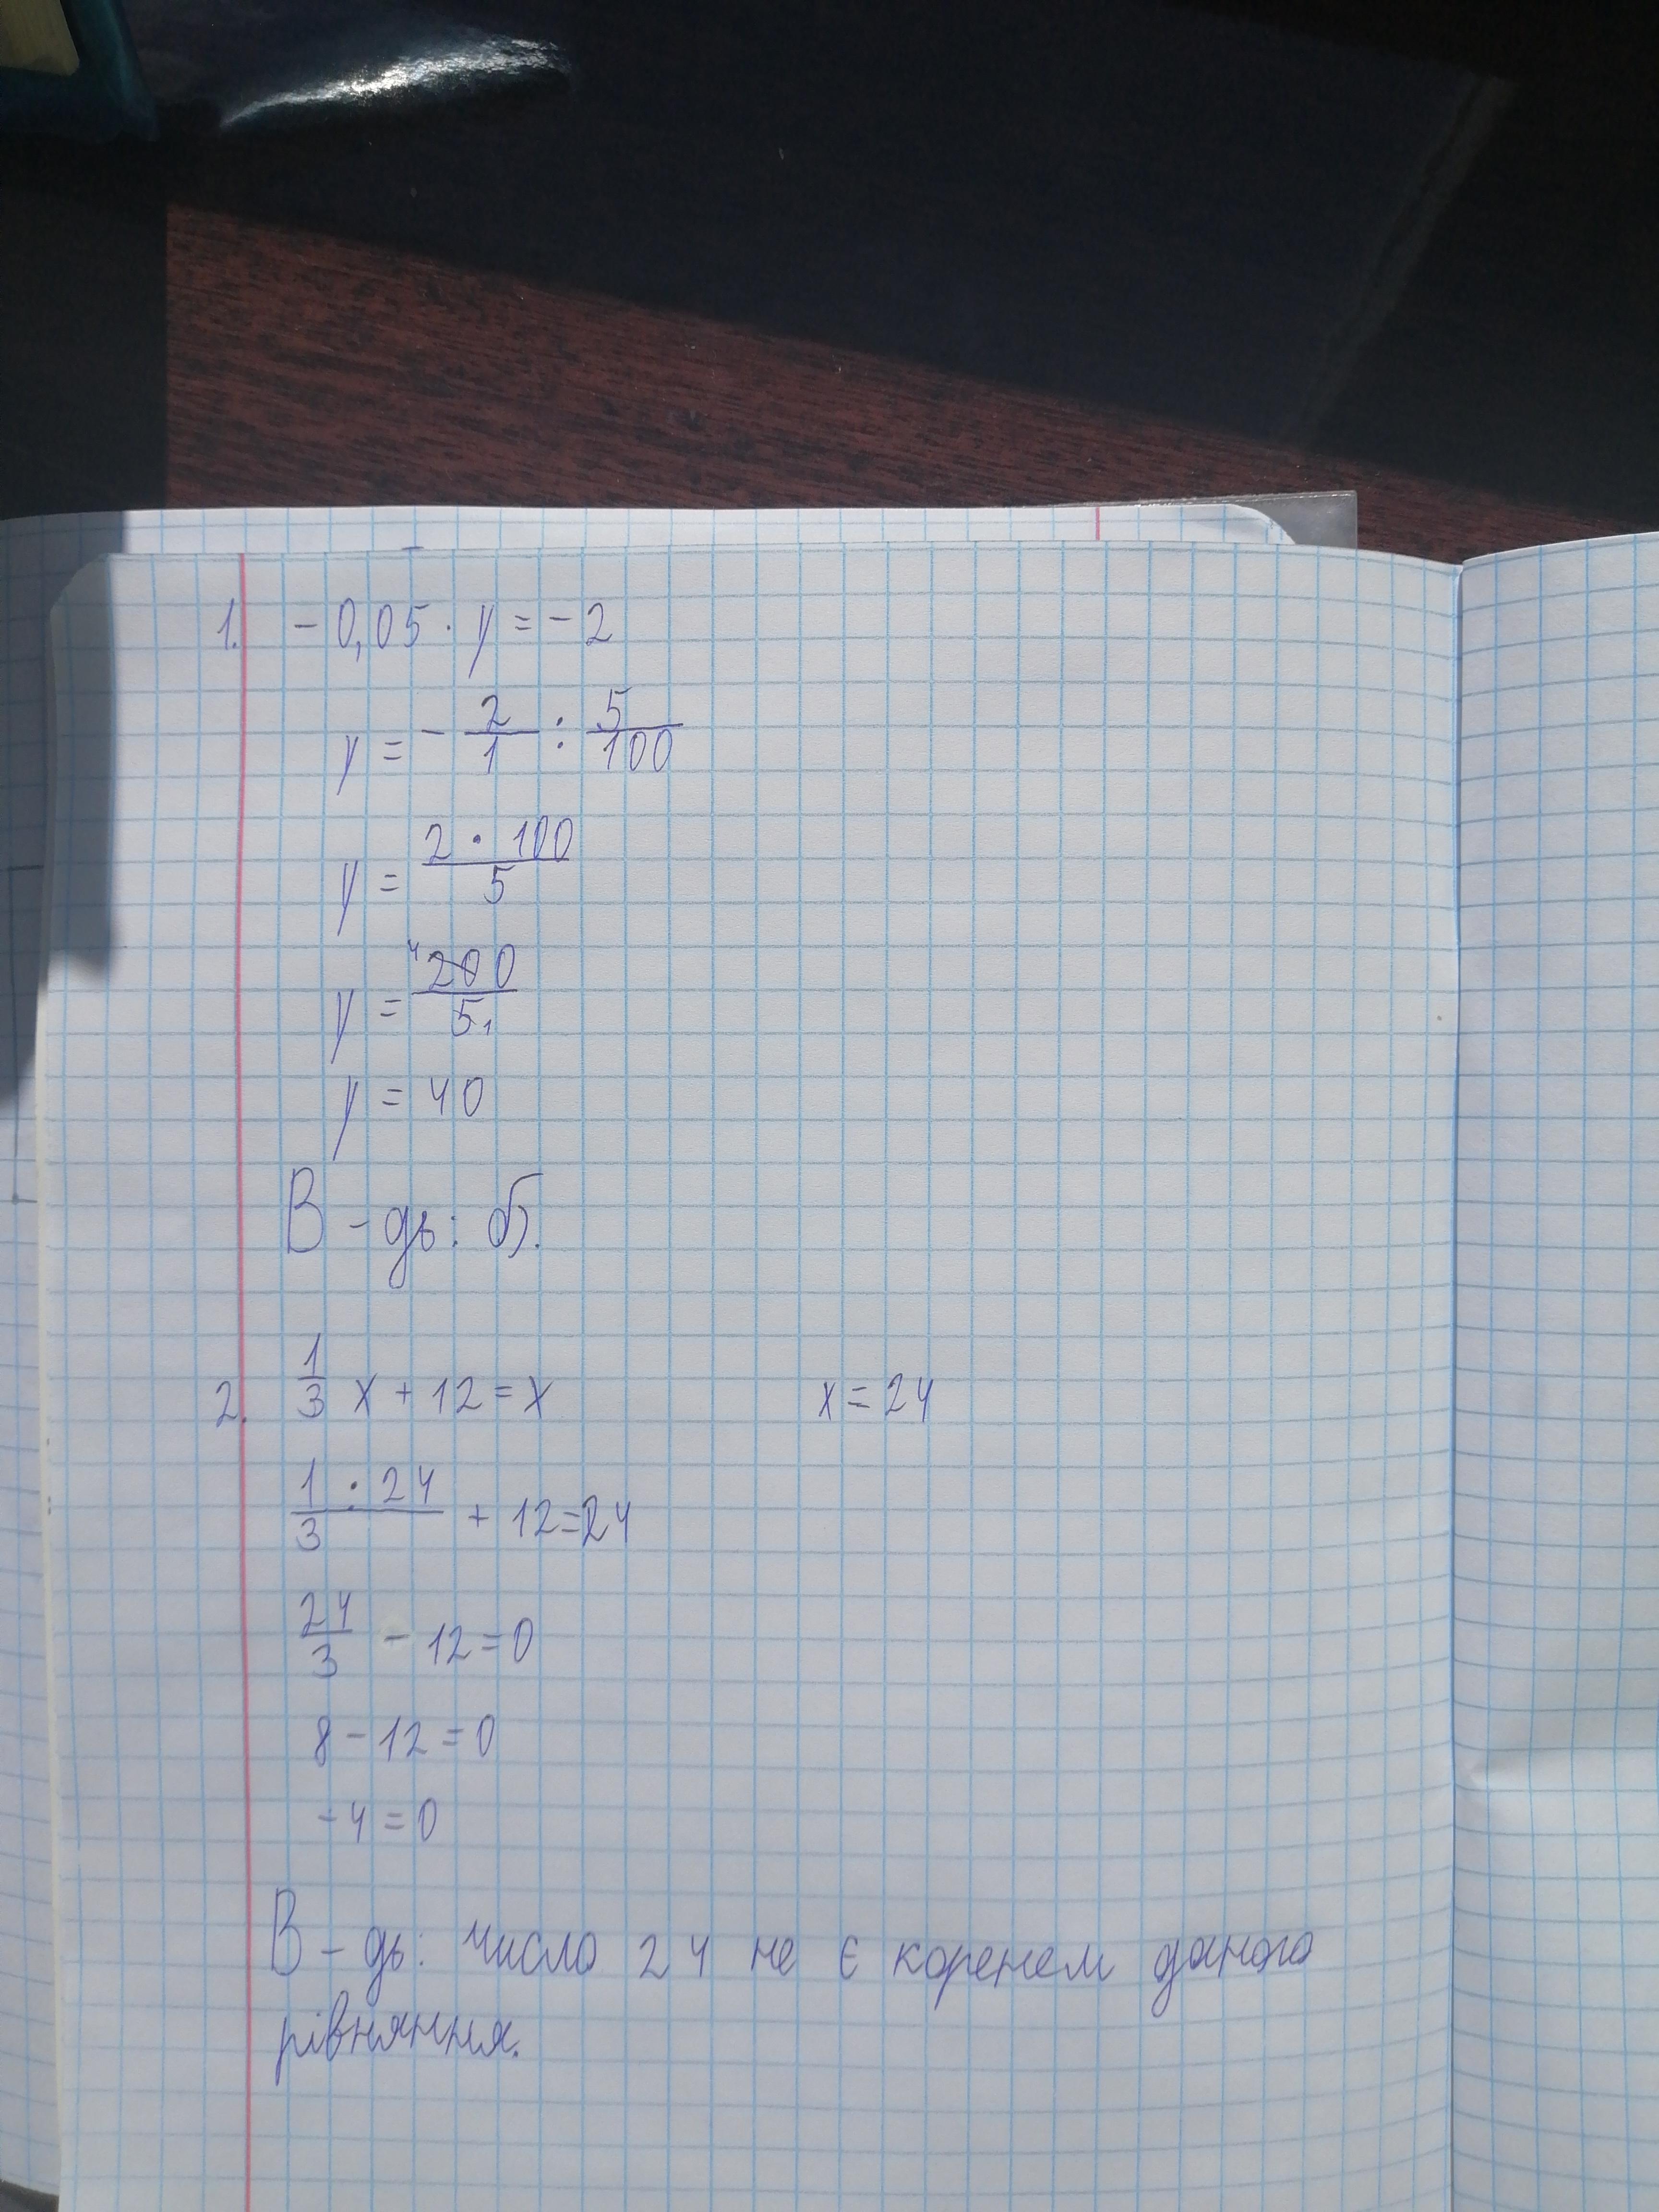 1. - 0,05 · y = - 2
y = - 2/1 : 5/100
y = 2 · 100/5
y = 4 200/5 1
y = 40
В - дь: б.
2. 1/3 x + 12 = x x = 24
1 · 24/3 + 12 = 24
24/3 - 12 = 0
8 - 12 = 0
- 4 = 0
В - дь: число 24 не є коренем даного
рівняння.